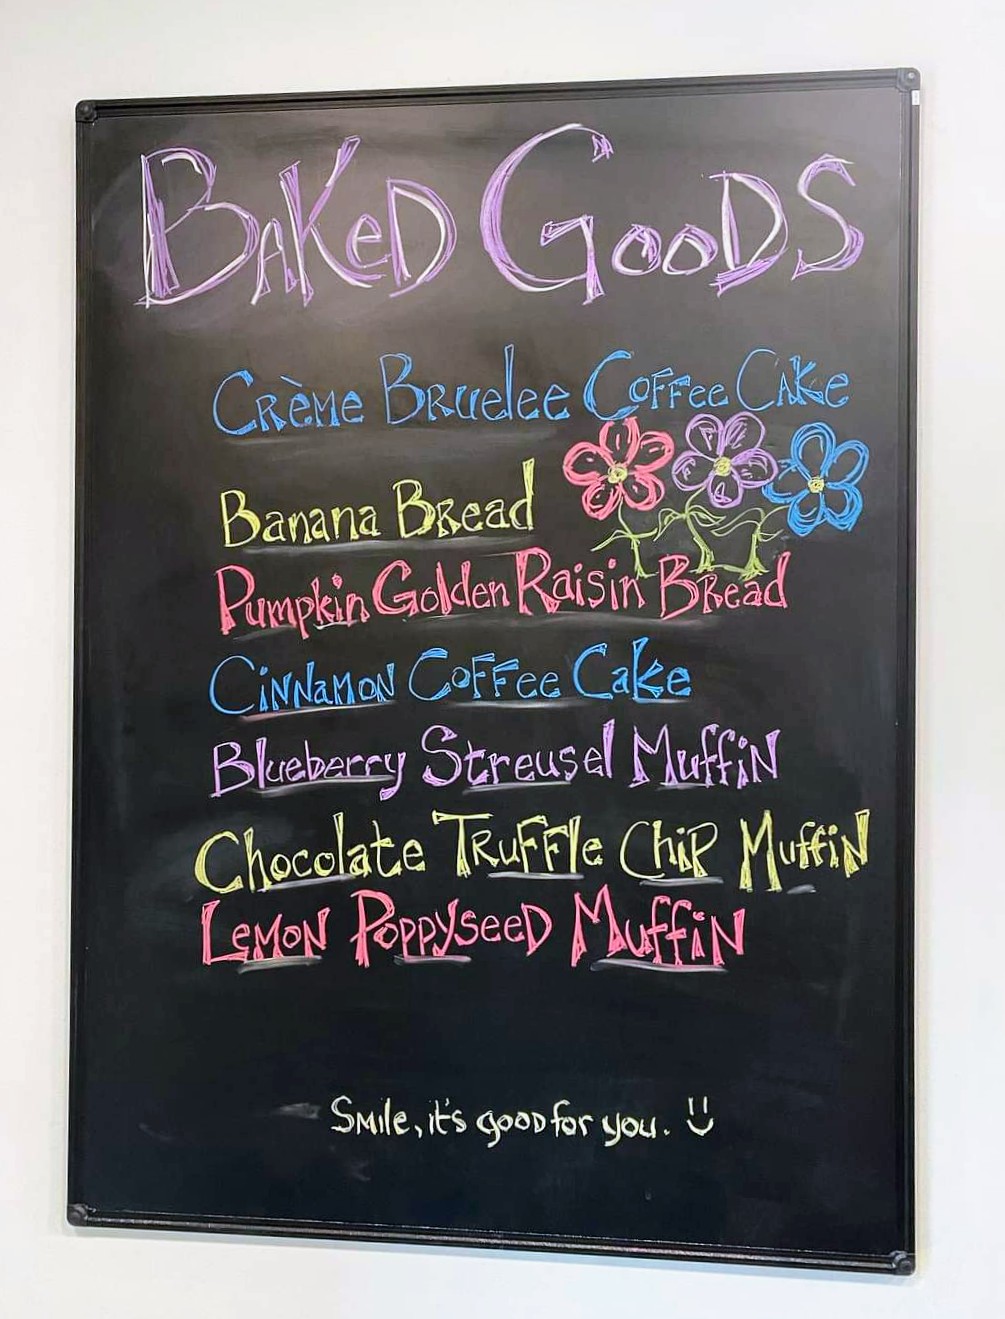 BAKeD GooDS
CRèMe BRuelee CoFFee CAKe
Banana BRead
Pumpkin Golden Raisin BRead
CiNNaMoN CoFFee Cake
Blueberry Streusel MuffiN
Chocolate TRuFFle ChiP MuffiN
LeMoN PoppyseeD MuffiN
SMile, it's gooD for you.